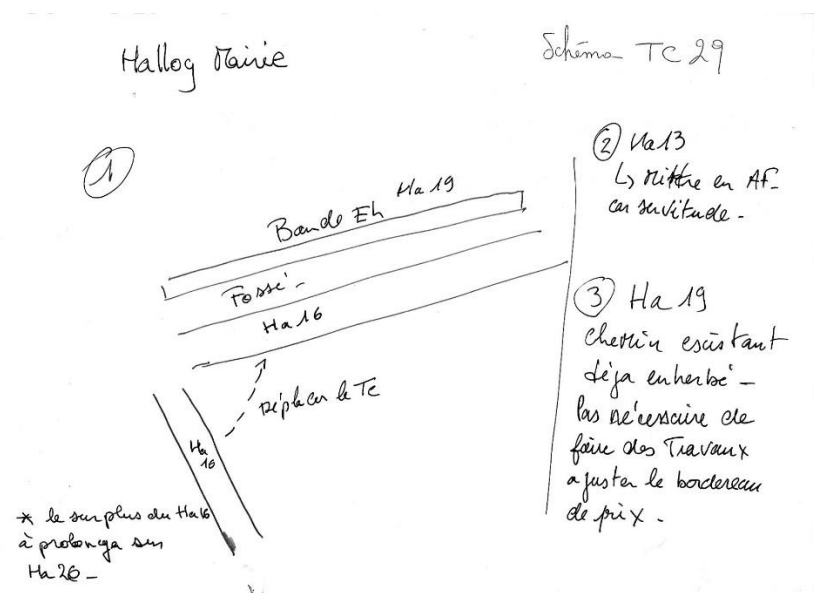 Hallog Mairie
Schéma TC 29
①
Bande Eh Ha 19
Fossé -
Ha 16
Déplacer le TC
Ha
16
* le surplus du Ha16
à prolonga sur
Ha 26 -
② Ha13
↳ Mittre en AF-
car servitude -
③ Ha 19
chemin existant
déja enherbé -
Pas nécessaire de
faire des Travaux
ajuster le bordereau
de prix .